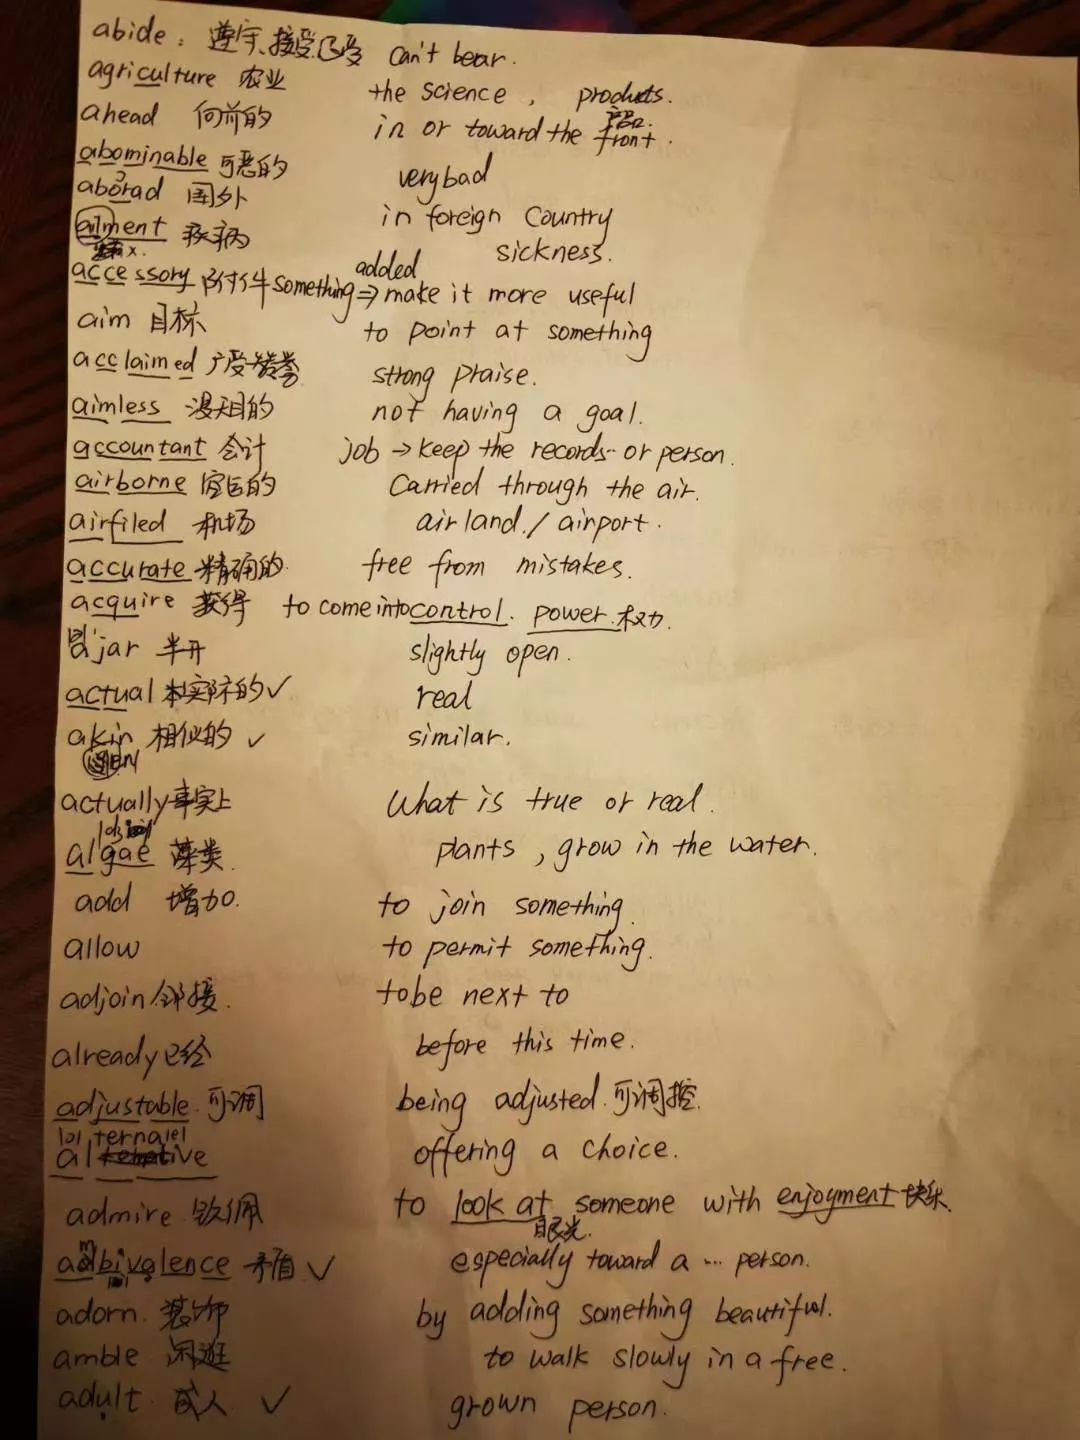 abide: 遵守、接受忍受 can't bear.
agriculture 农业 the science, products.
产品.
ahead 向前的 in or toward the front.
abominable 可恶的 very bad
aborad 国外 in foreign Country
ailment 疾病 sickness.
added
accessory 附件 something ⇒ make it more useful
aim 目标 to point at something
acclaimed 广受赞誉 strong praise.
aimless 漫无目的 not having a goal.
accountant 会计 job → keep the records.. or person.
airborne 空运的 Carried through the air.
airfiled 机场 airland./ airport.
accurate 精确的. free from mistakes.
acquire 获得 to come into control. power.权力.
ajar 半开 slightly open.
actual 实际的 ✓ real
akin 相似的 ✓ similar.
actually 事实上 What is true or real.
algae 藻类. plants, grow in the water.
add 增加. to join something.
allow to permit something.
adjoin 邻接. to be next to
already 已经 before this time.
adjustable. 可调 being adjusted. 可调控.
ternal
alternative offering a choice.
admire 钦佩 to look at someone with enjoyment 快乐.
眼光.
ambivalence 矛盾 ✓ especially toward a ... person.
adorn. 装饰 by adding something beautiful.
amble 闲逛 to walk slowly in a free.
adult. 成人 ✓ grown person.